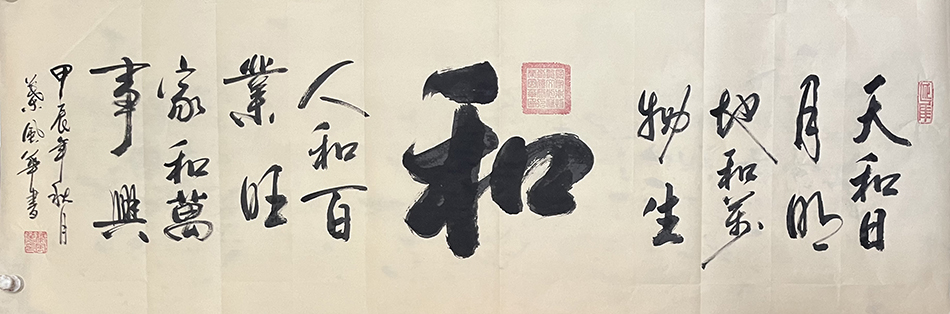 天和日
月明
地和万
物生
和
人和百
業旺
家和萬
事興
甲辰年秋月
葉風華書